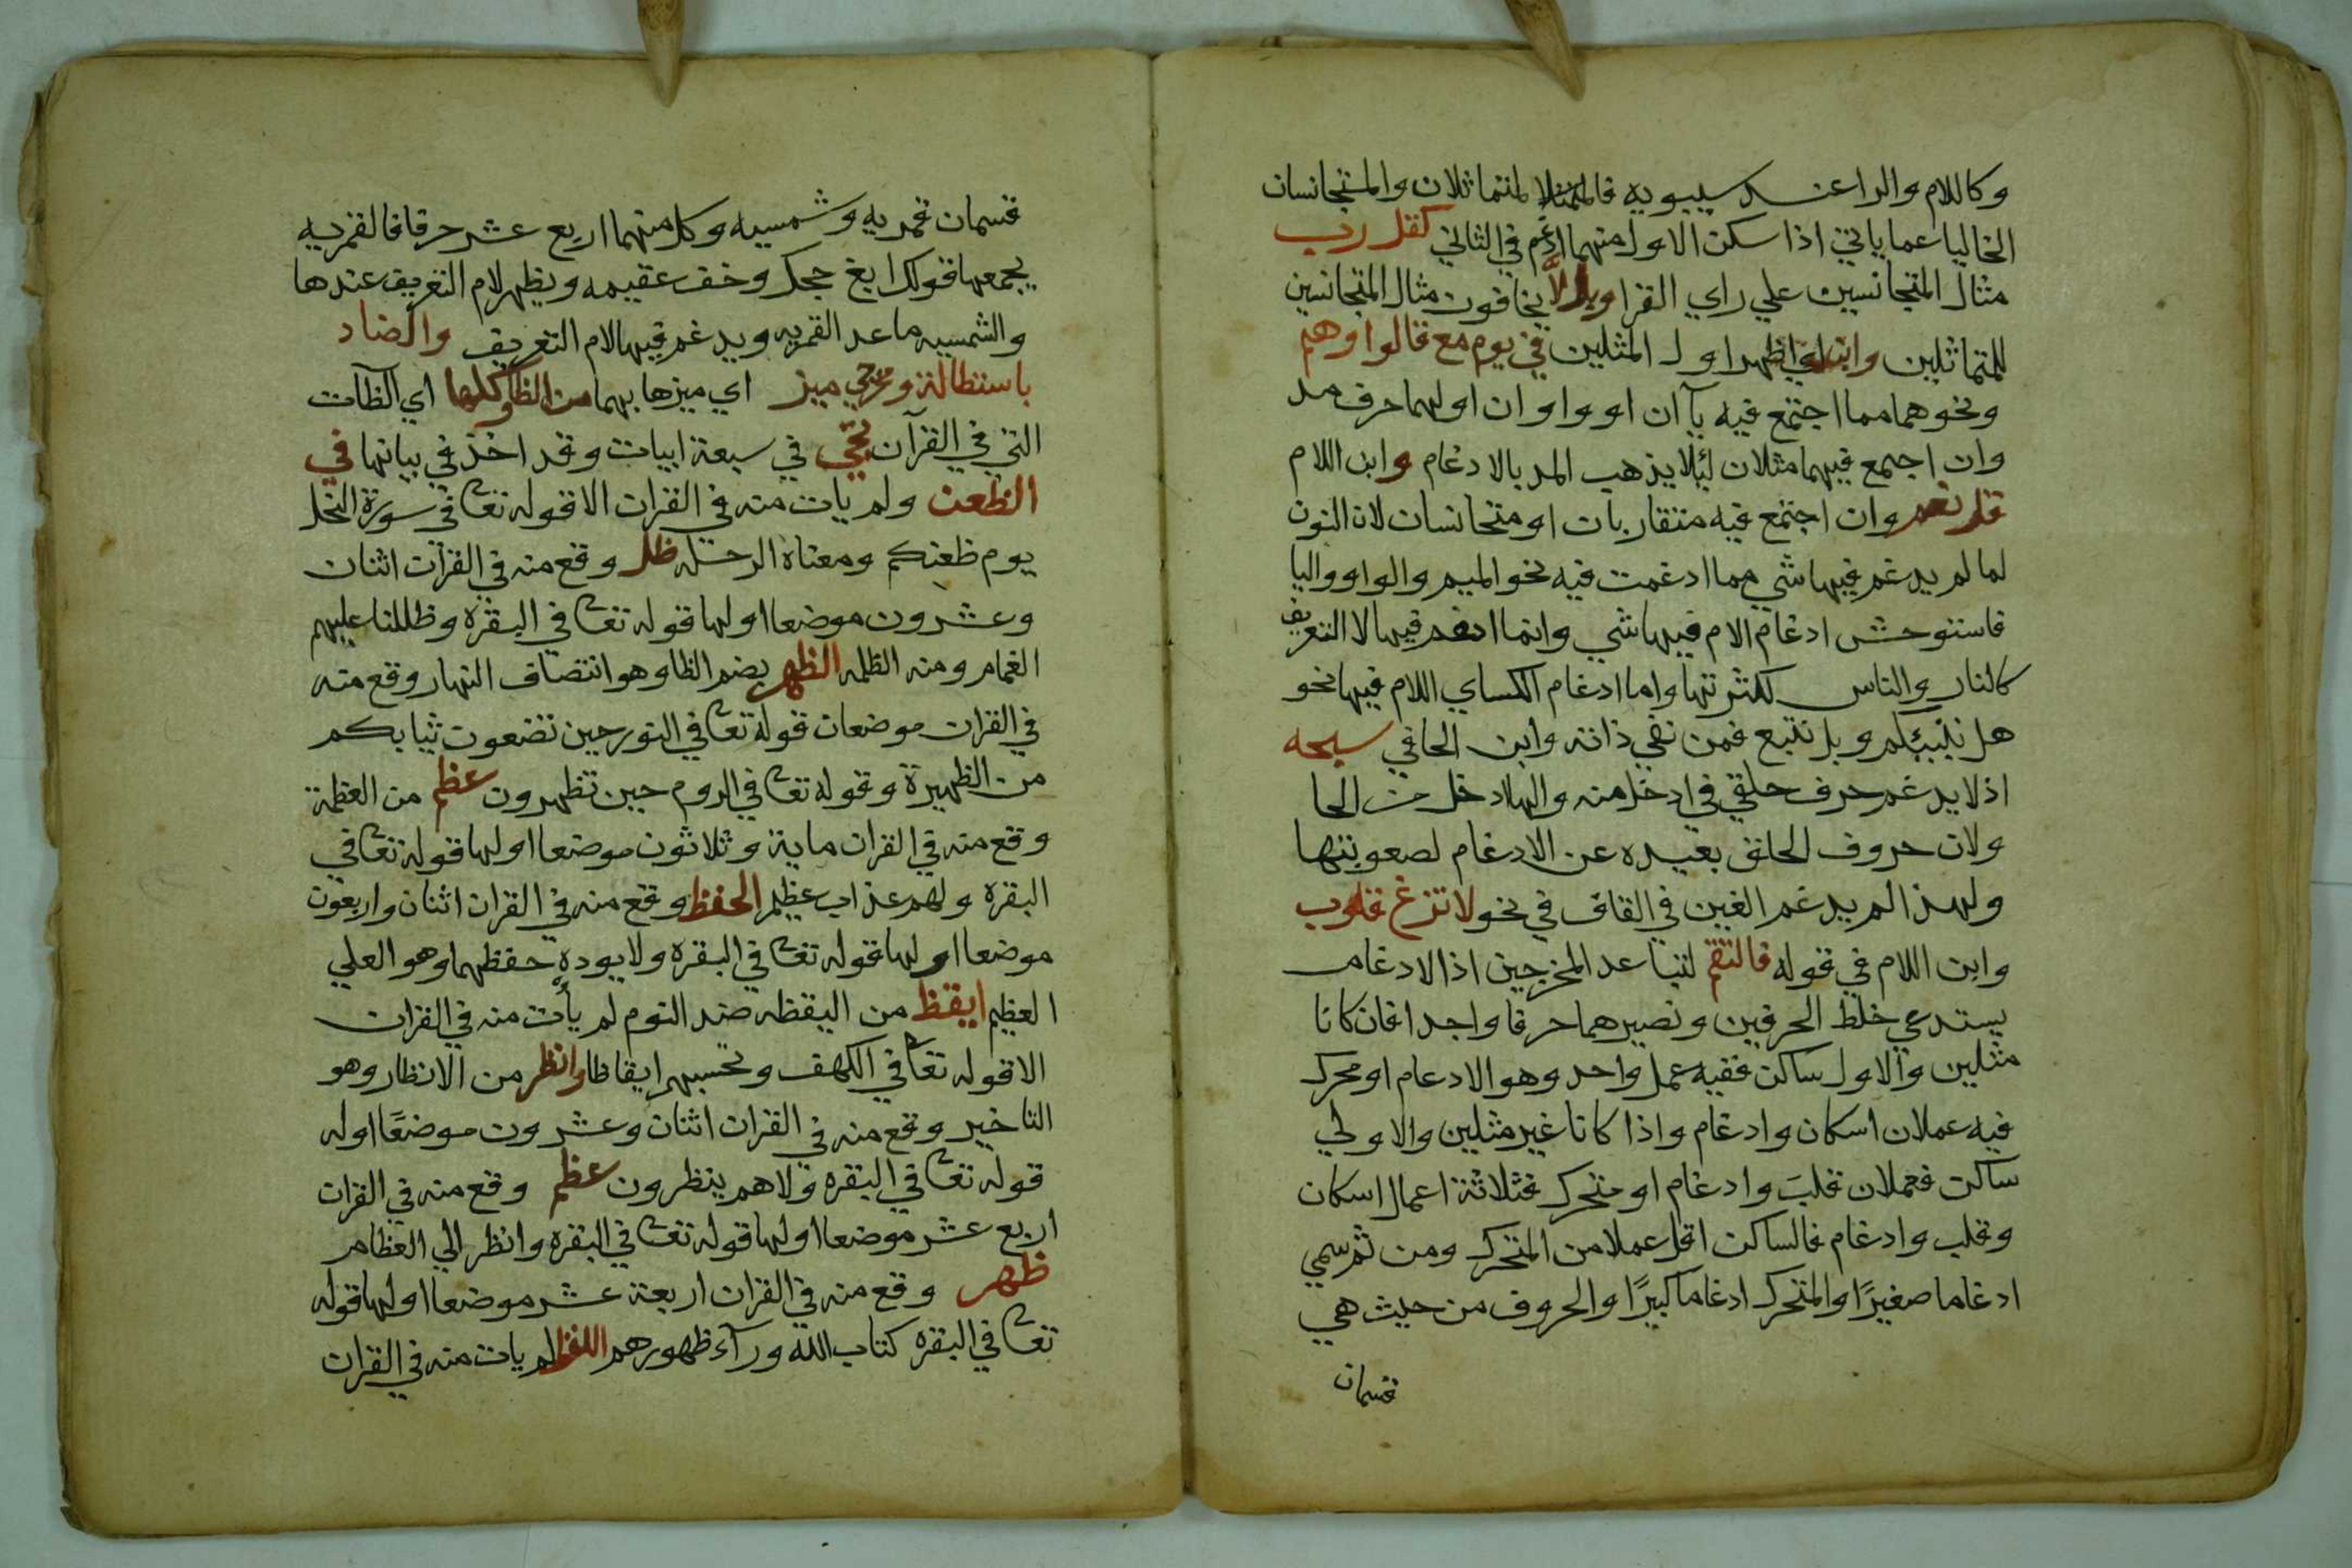 وكاللام والرا عند سيبويه فالمتماثلان والمتجانسان
الخاليا عما ياتي اذا سكن الاول منهما ادغم في الثاني كقل رب
مثال المتجانسين علي راي الفرا وبل لا يخافون مثال المتجانسين
للمتماثلين وابن اي اظهر اول المثلين في يوم مع قالوا وهم
ونحوهما مما اجتمع فيه يآ ان او واوان اولهما حرف مد
وان اجمع فيهما مثلان ليلا يذهب المد بالادغام وابن اللام
قل نعم وان اجتمع فيه متقاربات او متجانسات لان النون
لما لم يدغم فيها شي مما ادغمت فيه نحو الميم والواو واليا
فاستوحش ادغام الام فيها شي وانما ادغم فيها لا التعريف
كالنار والناس لكثرتها واما ادغام الكساي اللام فيها نحو
هل ننبيكم وبل نتبع فمن نفي ذاته وابن الحا في سبحه
اذ لا يدغم حرف حلقي في ادخل منه والها ادخل من الحا
ولان حروف الحلق بعيده عن الادغام لصعوبتها
ولهذا لم يدغم الغين في القاف في نحو لا تزغ قلوب
وابن اللام في قوله فالتقم لتباعد المخرجين اذ الادغام
يستدعي خلط الحرفين وتصيرهما حرفا واحدا فان كانا
مثلين والاول ساكن ففيه عمل واحد وهو الادعام او محرك
فيه عملان اسكان وادغام واذا كانا غير مثلين والاولي
ساكن فعملان قلبَ وادغام او متحرك فثلاثة اعمال اسكان
وقلب وادغام فالساكن اقل عملا من المتحرك ومن ثم سمي
ادغاما صغيرًا والمتحرك ادغاما كبيرًا والحروف من حيث هي
قسمان
قسمان قمريه وشمسيه وكل منهما اربع عشر حرفا فالقمريه
يجمعها قولك ابغ حجك وخف عقيمه ويظهر لام التعريف عندها
والشمسيه ما عدا القمريه ويدغم فيها لام التعريف والضاد
باستطالة ومخرج ميز اي ميزها بهما من الظا وكلها اي الظآت
التي في القرآن تجي في سبعة ابيات وقد اخذ في بيانها في
الظعن ولم يات منه في القران الا قوله تعا في سورة النحل
يوم ظعنكم ومعناه الرحله ظل وقع منه في القرآن اثنان
وعشرون موضعا اولها قوله تعا في البقره وظللنا عليهم
الغمام ومنه الظله الظهر بضم الظا وهو انتصاف النهار وقع منه
في القران موضعان قوله تعا في النور حين تضعون ثيابكم
من الظهيرة وقوله تعا في الروم حين تظهرون عظم من العظمة
وقع منه في القران ماية وثلاثون موضعا اولها قوله تعا في
البقره ولهم عذاب عظيم الحفظ وقع منه في القران اثنان واربعون
موضعا اولها قوله تعا في البقره ولا يوده حفظهما وهو العلي
العظيم ايقظ من اليقظه ضد النوم لم يأت منه في القران
الا قوله تعا في الكهف وتحسبهم ايقاظا وانظر من الانظار وهو
التاخير وقع منه في القران اثنان وعشرون موضعًا اوله
قوله تعا في البقره ولا هم ينظرون عظم وقع منه في القران
اربع عشر موضعا اولها قوله تعا في البقره وانظر الي العظام
ظهر وقع منه في القران اربعة عشر موضعا اولها قوله
تعا في البقره كتاب الله ورآء ظهورهم اللفظ لم يات منه في القران